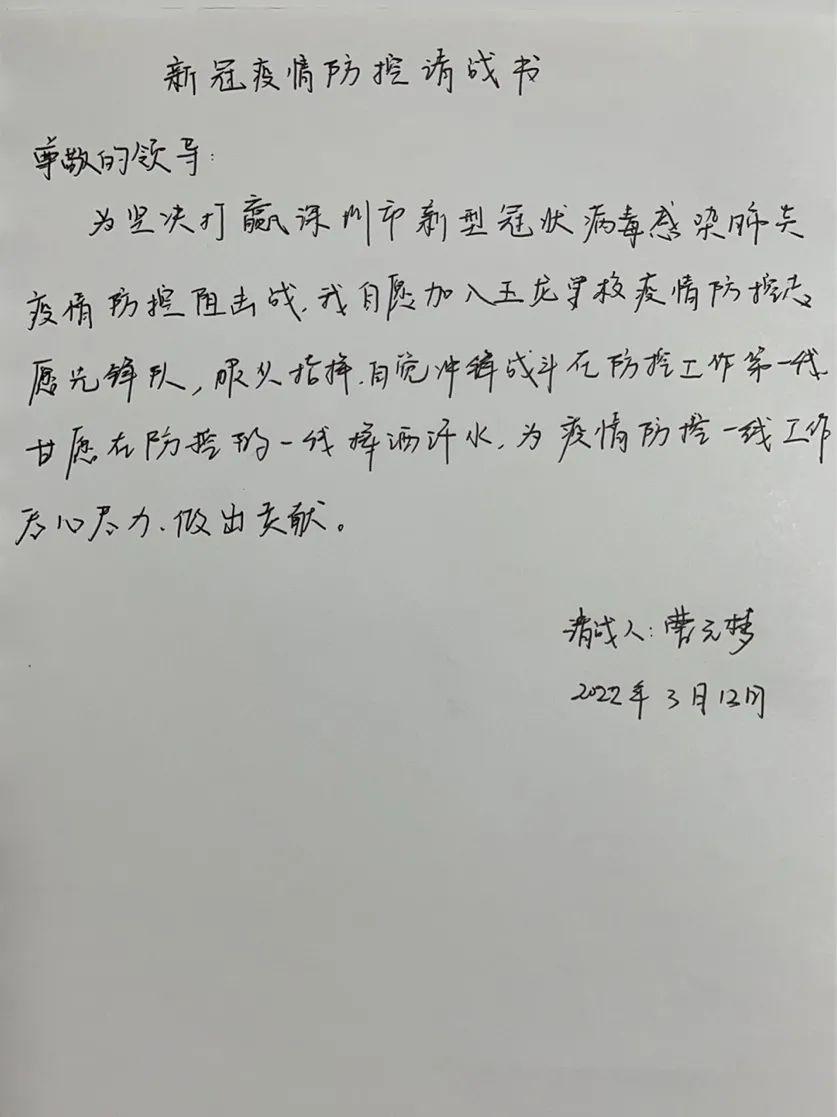 新冠疫情防控请战书
尊敬的领导:
为坚决打赢深圳市新型冠状病毒感染肺炎
疫情防控阻击战,我自愿加入玉龙学校疫情防控志
愿先锋队,服从指挥,自觉冲锋战斗在防控工作第一线,
甘愿在防控的一线挥洒汗水,为疫情防控一线工作
尽心尽力、做出贡献。
请战人:曹元梦
2022年3月12日